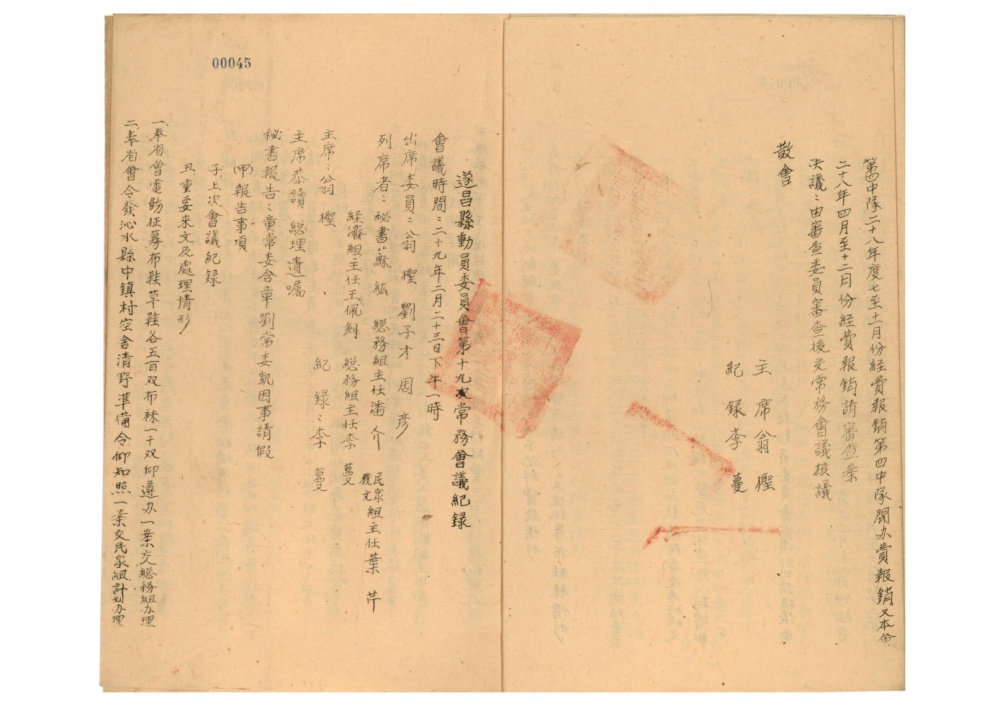 第四中隊二十八年度七至十一月份經費報銷第四中隊開办費報銷又本會
二十八年四月至十二月份經費報銷請審查案
決議：由審查委員審查後交常務會議核議
散會
主席翁檉
紀錄李蔓
遂昌縣動員委員會第十九次常務會議紀錄
會議時間：二十九年二月二十三日下午一時
出席委員：翁檉 劉子才 周彥
列席者：秘書蘇 総務組主任潘介 民眾組主任葉芹
經濟組主任王佩 総務組主任李蔓
主席：翁檉 紀錄：李蔓
主席恭讀 総理遺囑
秘書報告：童常委含章劉常委凱因事請假
(甲)報告事項
子、上次會議紀錄
丑、重要來文及處理情形
一、奉省會電飭征募布鞋草鞋各五百双布袜一千双仰遵办一案交総務組办理
二、奉省會令發沁水縣中鎮村空舍清野準備令仰知照一案交民眾組計划办理
00045